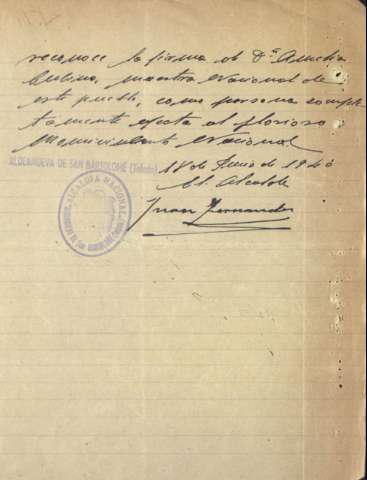 reconoce la firma de Dª Amelia
maestra Nacional de
este pueblo, como persona comple
tamente afecta al glorioso
Movimiento Nacional
ALDEANUEVA DE SAN BARTOLOMÉ (Toledo)
18 de Junio de 1940
El Alcalde
Juan Fernandez
ALCALDIA NACIONAL